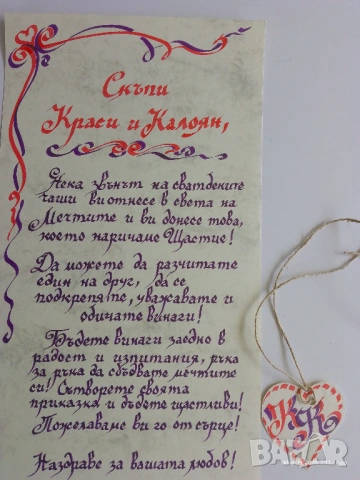 Скъпи
Краси и Калоян,
Нека звънът на сватбените
чаши ви отнесе в света на
Мечтите и ви донесе това,
което наричаме Щастие!
Да можете да разчитате
един на друг, да се
подкрепяте, уважавате и
обичате винаги!
Бъдете винаги заедно в
радост и изпитания, ръка
за ръка да сбъдвате мечтите
си! Сътворете своята
приказка и бъдете щастливи!
Пожелаваме ви го от сърце!
Наздраве за вашата любов!
К&К
bazar